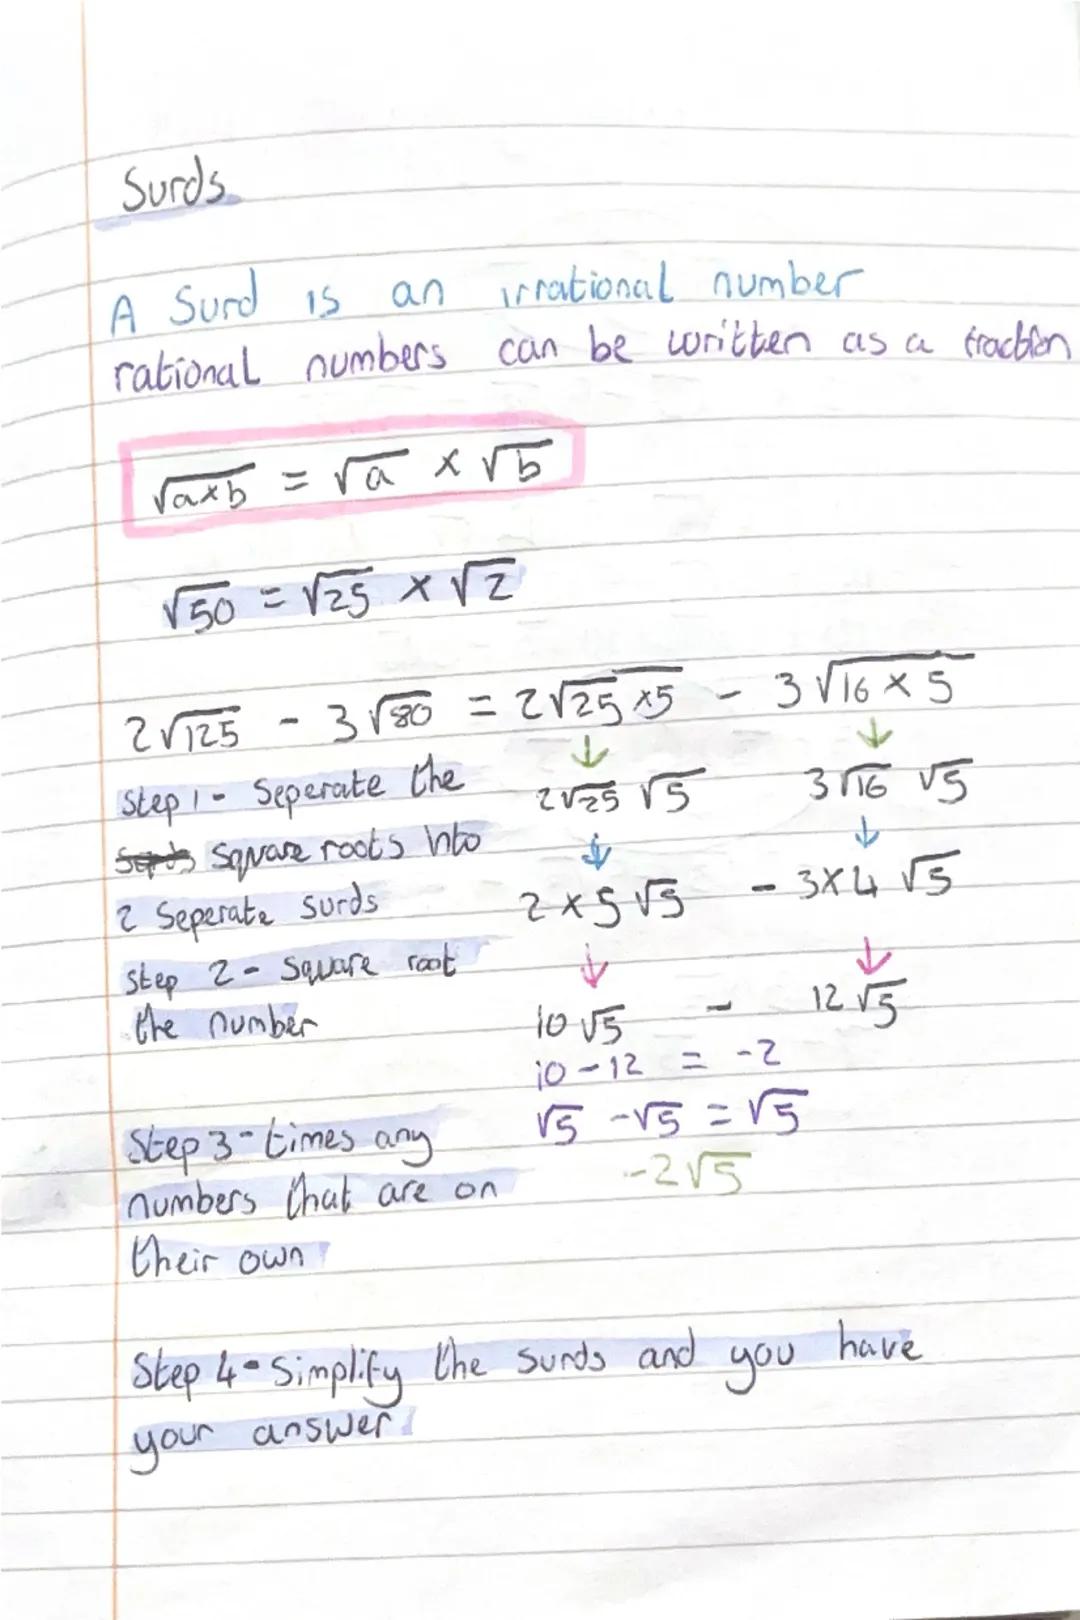 Surds
A Surd is an irrational number
rational numbers can be written as a fraction
√axb = √a × √b
√50 = √25 × √2
2√125 - 3√80 = 2√25×5 - 3√16×5
↓ ↓
Step 1 - Seperate the 2√25 √5 3√16 √5
square roots into ↓ ↓
2 Seperate Surds 2×5√5 - 3×4√5
Step 2 - Square root ↓ ↓
the number 10√5 - 12√5
10-12 = -2
Step 3 - times any √5 -√5 = √5
numbers that are on -2√5
their own
Step 4 - Simplify the surds and you have
your answer